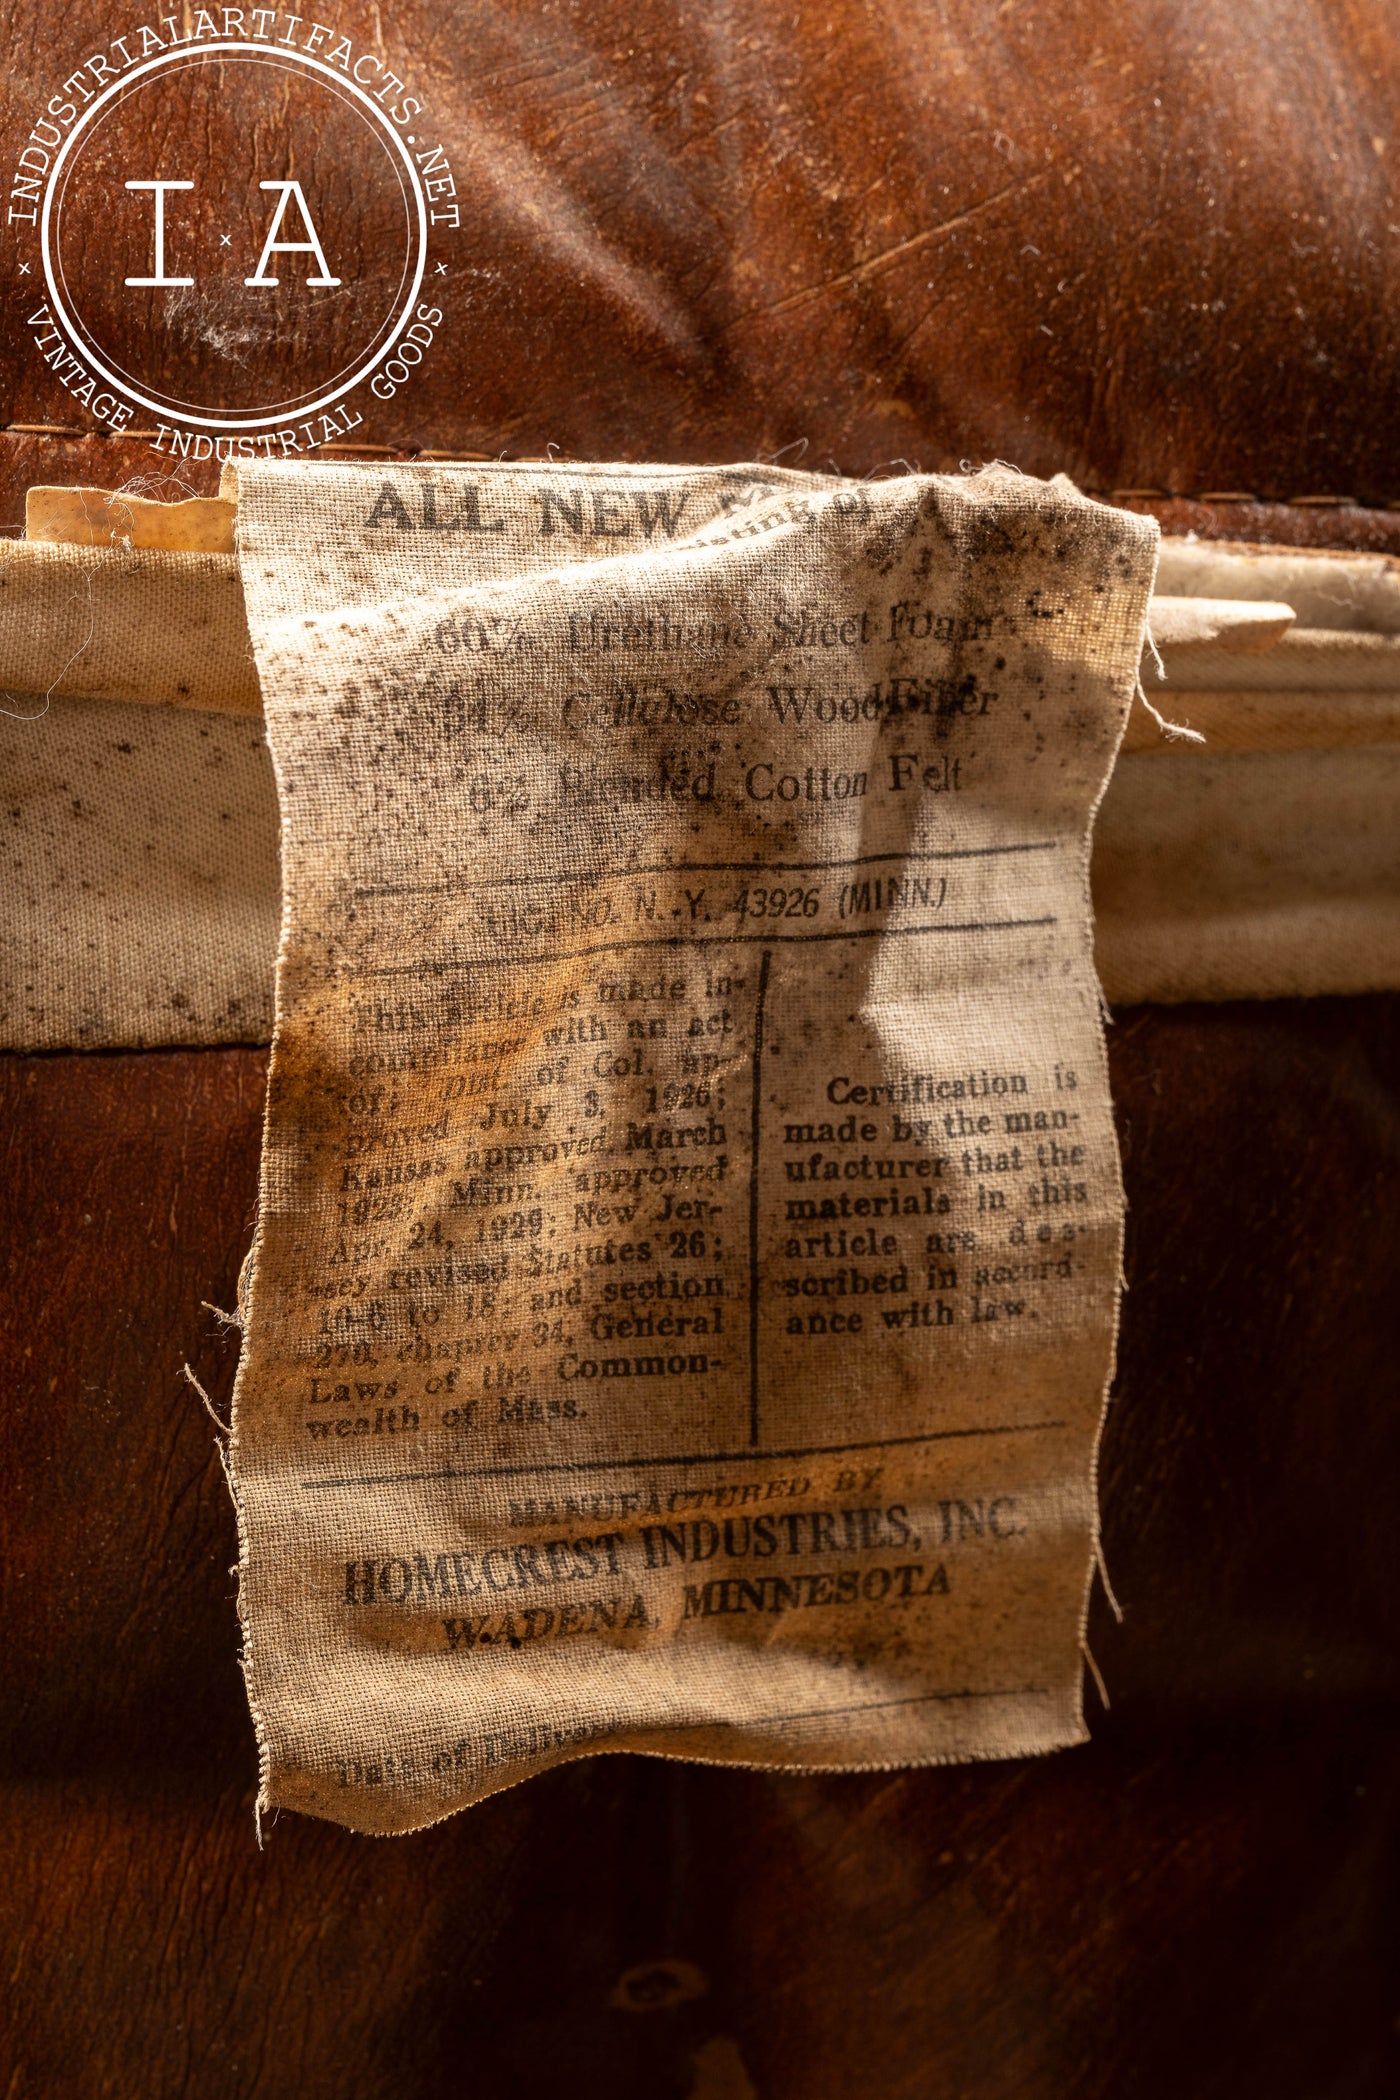 INDUSTRIALARTIFACTS.NET
I x A
VINTAGE INDUSTRIAL GOODS
ALL NEW
isting of
60% Urethane Sheet Foam
34% Cellulose Wood Fiber
6% Blended Cotton Felt
NO. N. Y. 43926 (MINN.)
This article is made in-
compliance with an act
of; Dist. of Col. ap-
proved July 3, 1926;
Kansas approved March
1923; Minn. approved
Apr. 24, 1929; New Jer-
sey revised Statutes 26;
10-6 to 18; and section
270, chapter 94, General
Laws of the Common-
wealth of Mass.
Certification is
made by the man-
ufacturer that the
materials in this
article are des-
scribed in accord-
ance with law.
MANUFACTURED BY
HOMECREST INDUSTRIES, INC.
WADENA, MINNESOTA
Date of Delivery